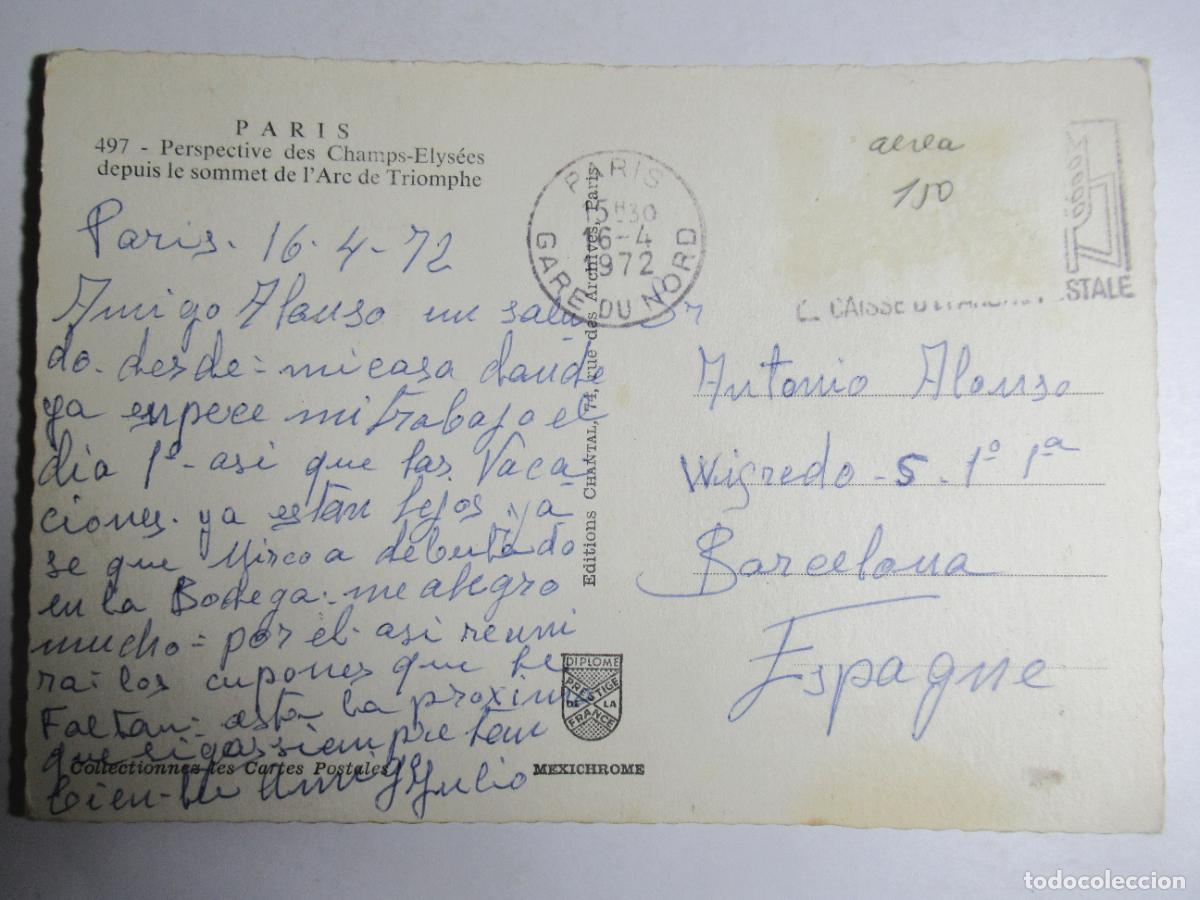 PARIS
497 - Perspective des Champs-Elysées
depuis le sommet de l'Arc de Triomphe
Paris. 16-4-72
Amigo Alonso un salu
do. desde = mi casa donde
ya enpece mi trabajo el
dia 1º - asi que las Vaca-
ciones. ya estan lejos. ya-
se que Mirco a debutado
en la Bodega = me alegro
mucho = por el. asi reuni
ra = los cupones que le
Faltan = asta la proxima
que sigas siempre tan
bien - tu Amigo Julio
Collectionnez les Cartes Postales
Editions CHANTAL, 74, rue des Archives, Paris
DIPLOME
PRESTIGE
DE LA
FRANCE
MEXICHROME
PARIS
15H30
16-4
1972
GARE DU NORD
aerea
150
CAISSE STALE
Sr
Antonio Alonso
Wigredo - 5 - 1º 1ª
Barcelona
Espagne
todocoleccion